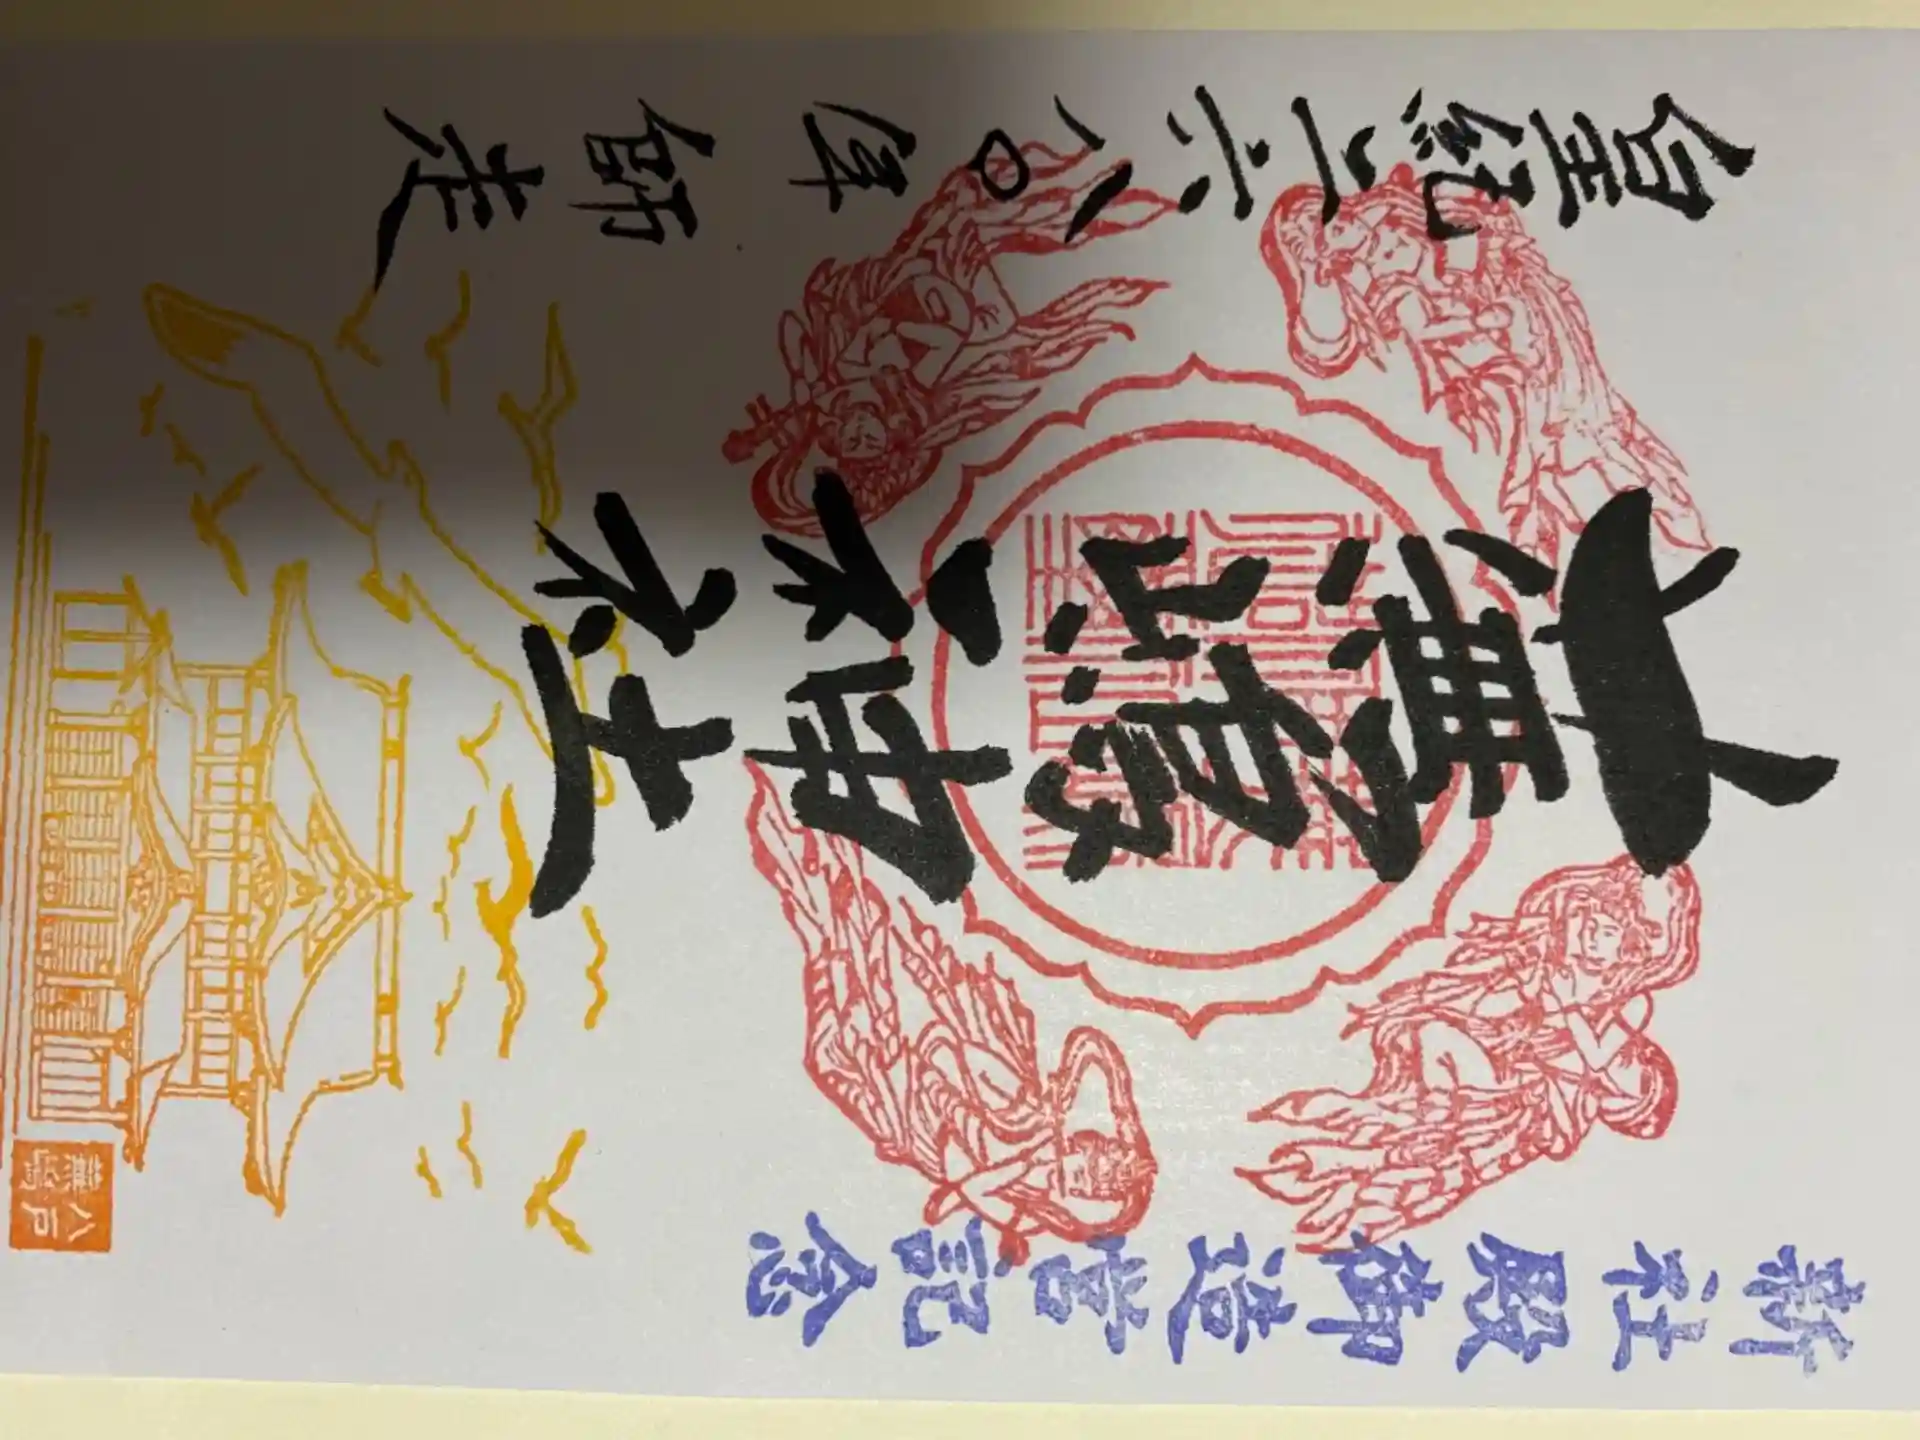 新社殿御造営記念
蕪嶋神社
皇紀二六八〇年師走
八戸
蕪嶋